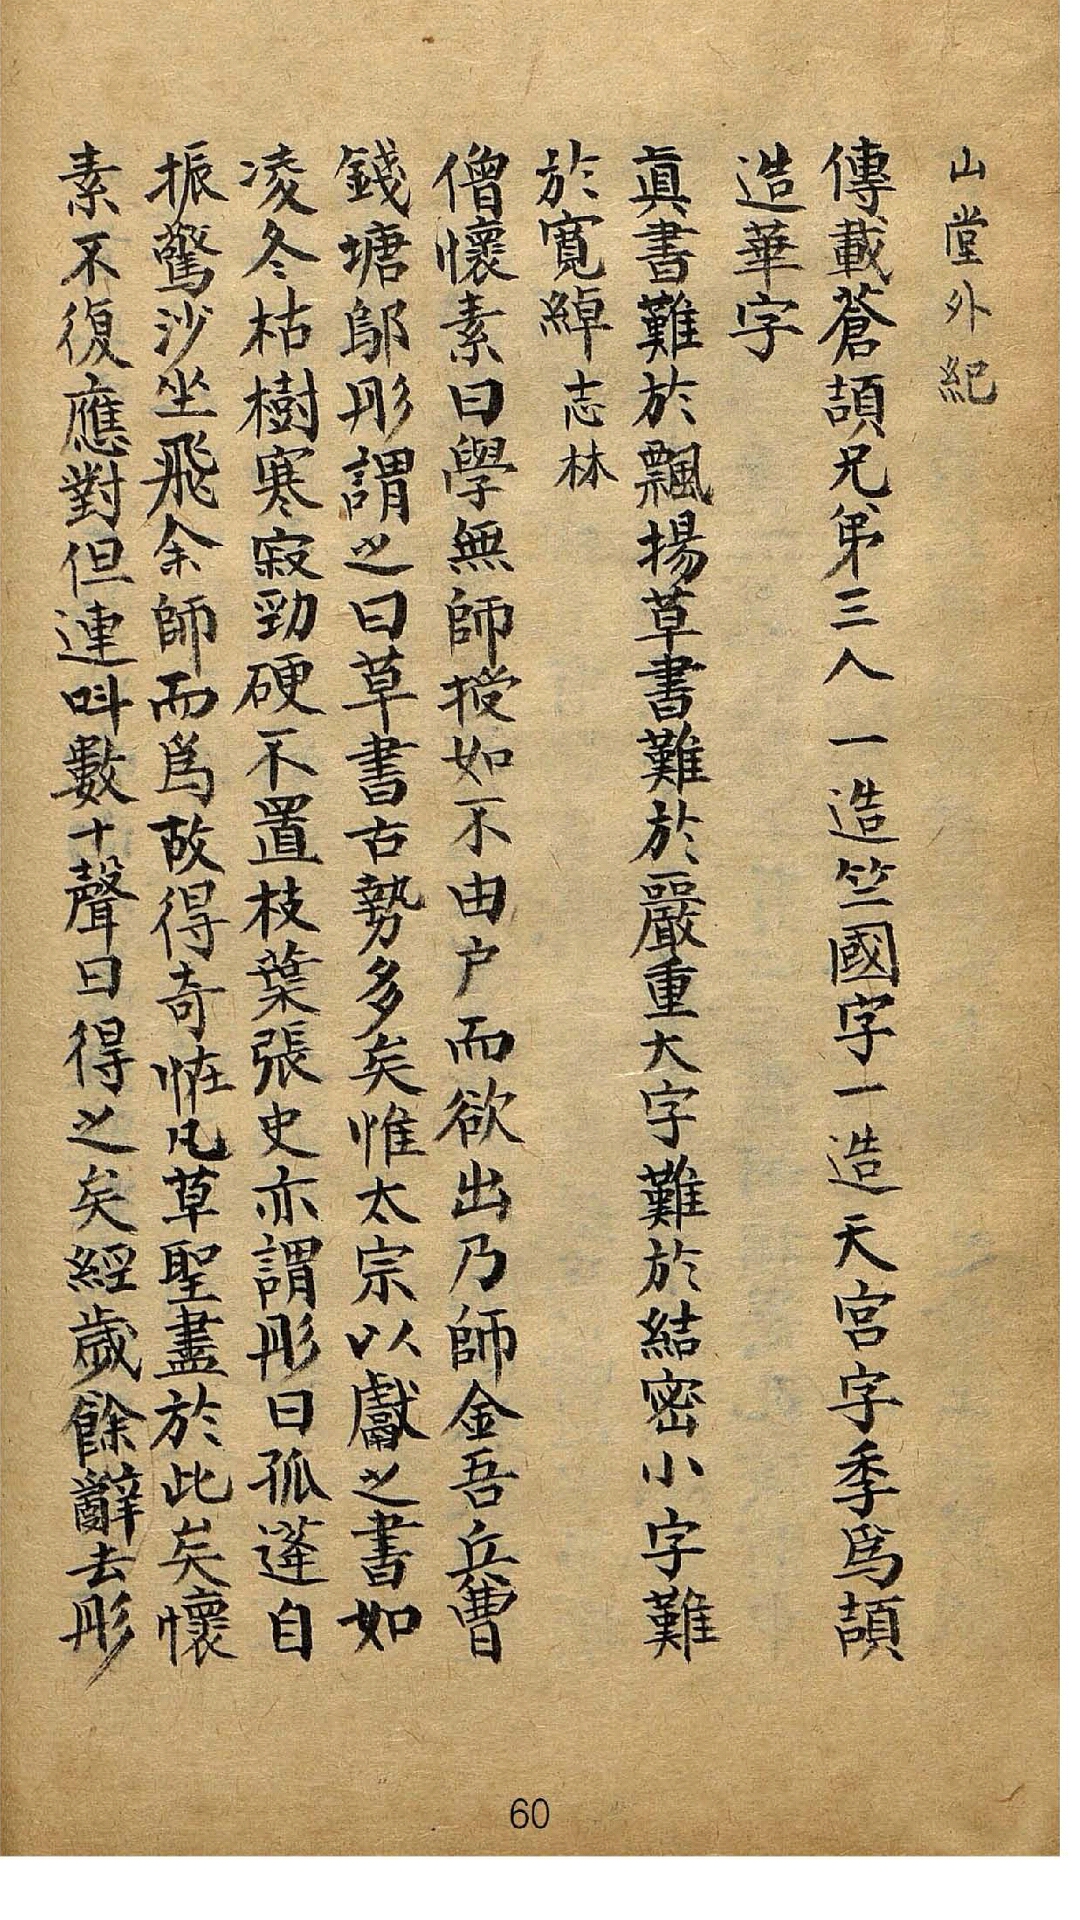 山堂外紀
傳載蒼頡兄弟三人一造竺國字一造天宮字季爲頡
造華字
眞書難於飄揚草書難於嚴重大字難於結密小字難
於寬綽志林
僧懷素曰學無師授如不由户而欲出乃師金吾兵曹
錢塘鄔彤謂之曰草書古勢多矣惟太宗以獻之書如
凌冬枯樹寒寂勁硬不置枝葉張史亦謂彤曰孤蓬自
振驚沙坐飛余師而爲故得奇恠凡草聖盡於此矣懷
素不復應對但連呌數十聲曰得之矣經歲餘辭去彤
60